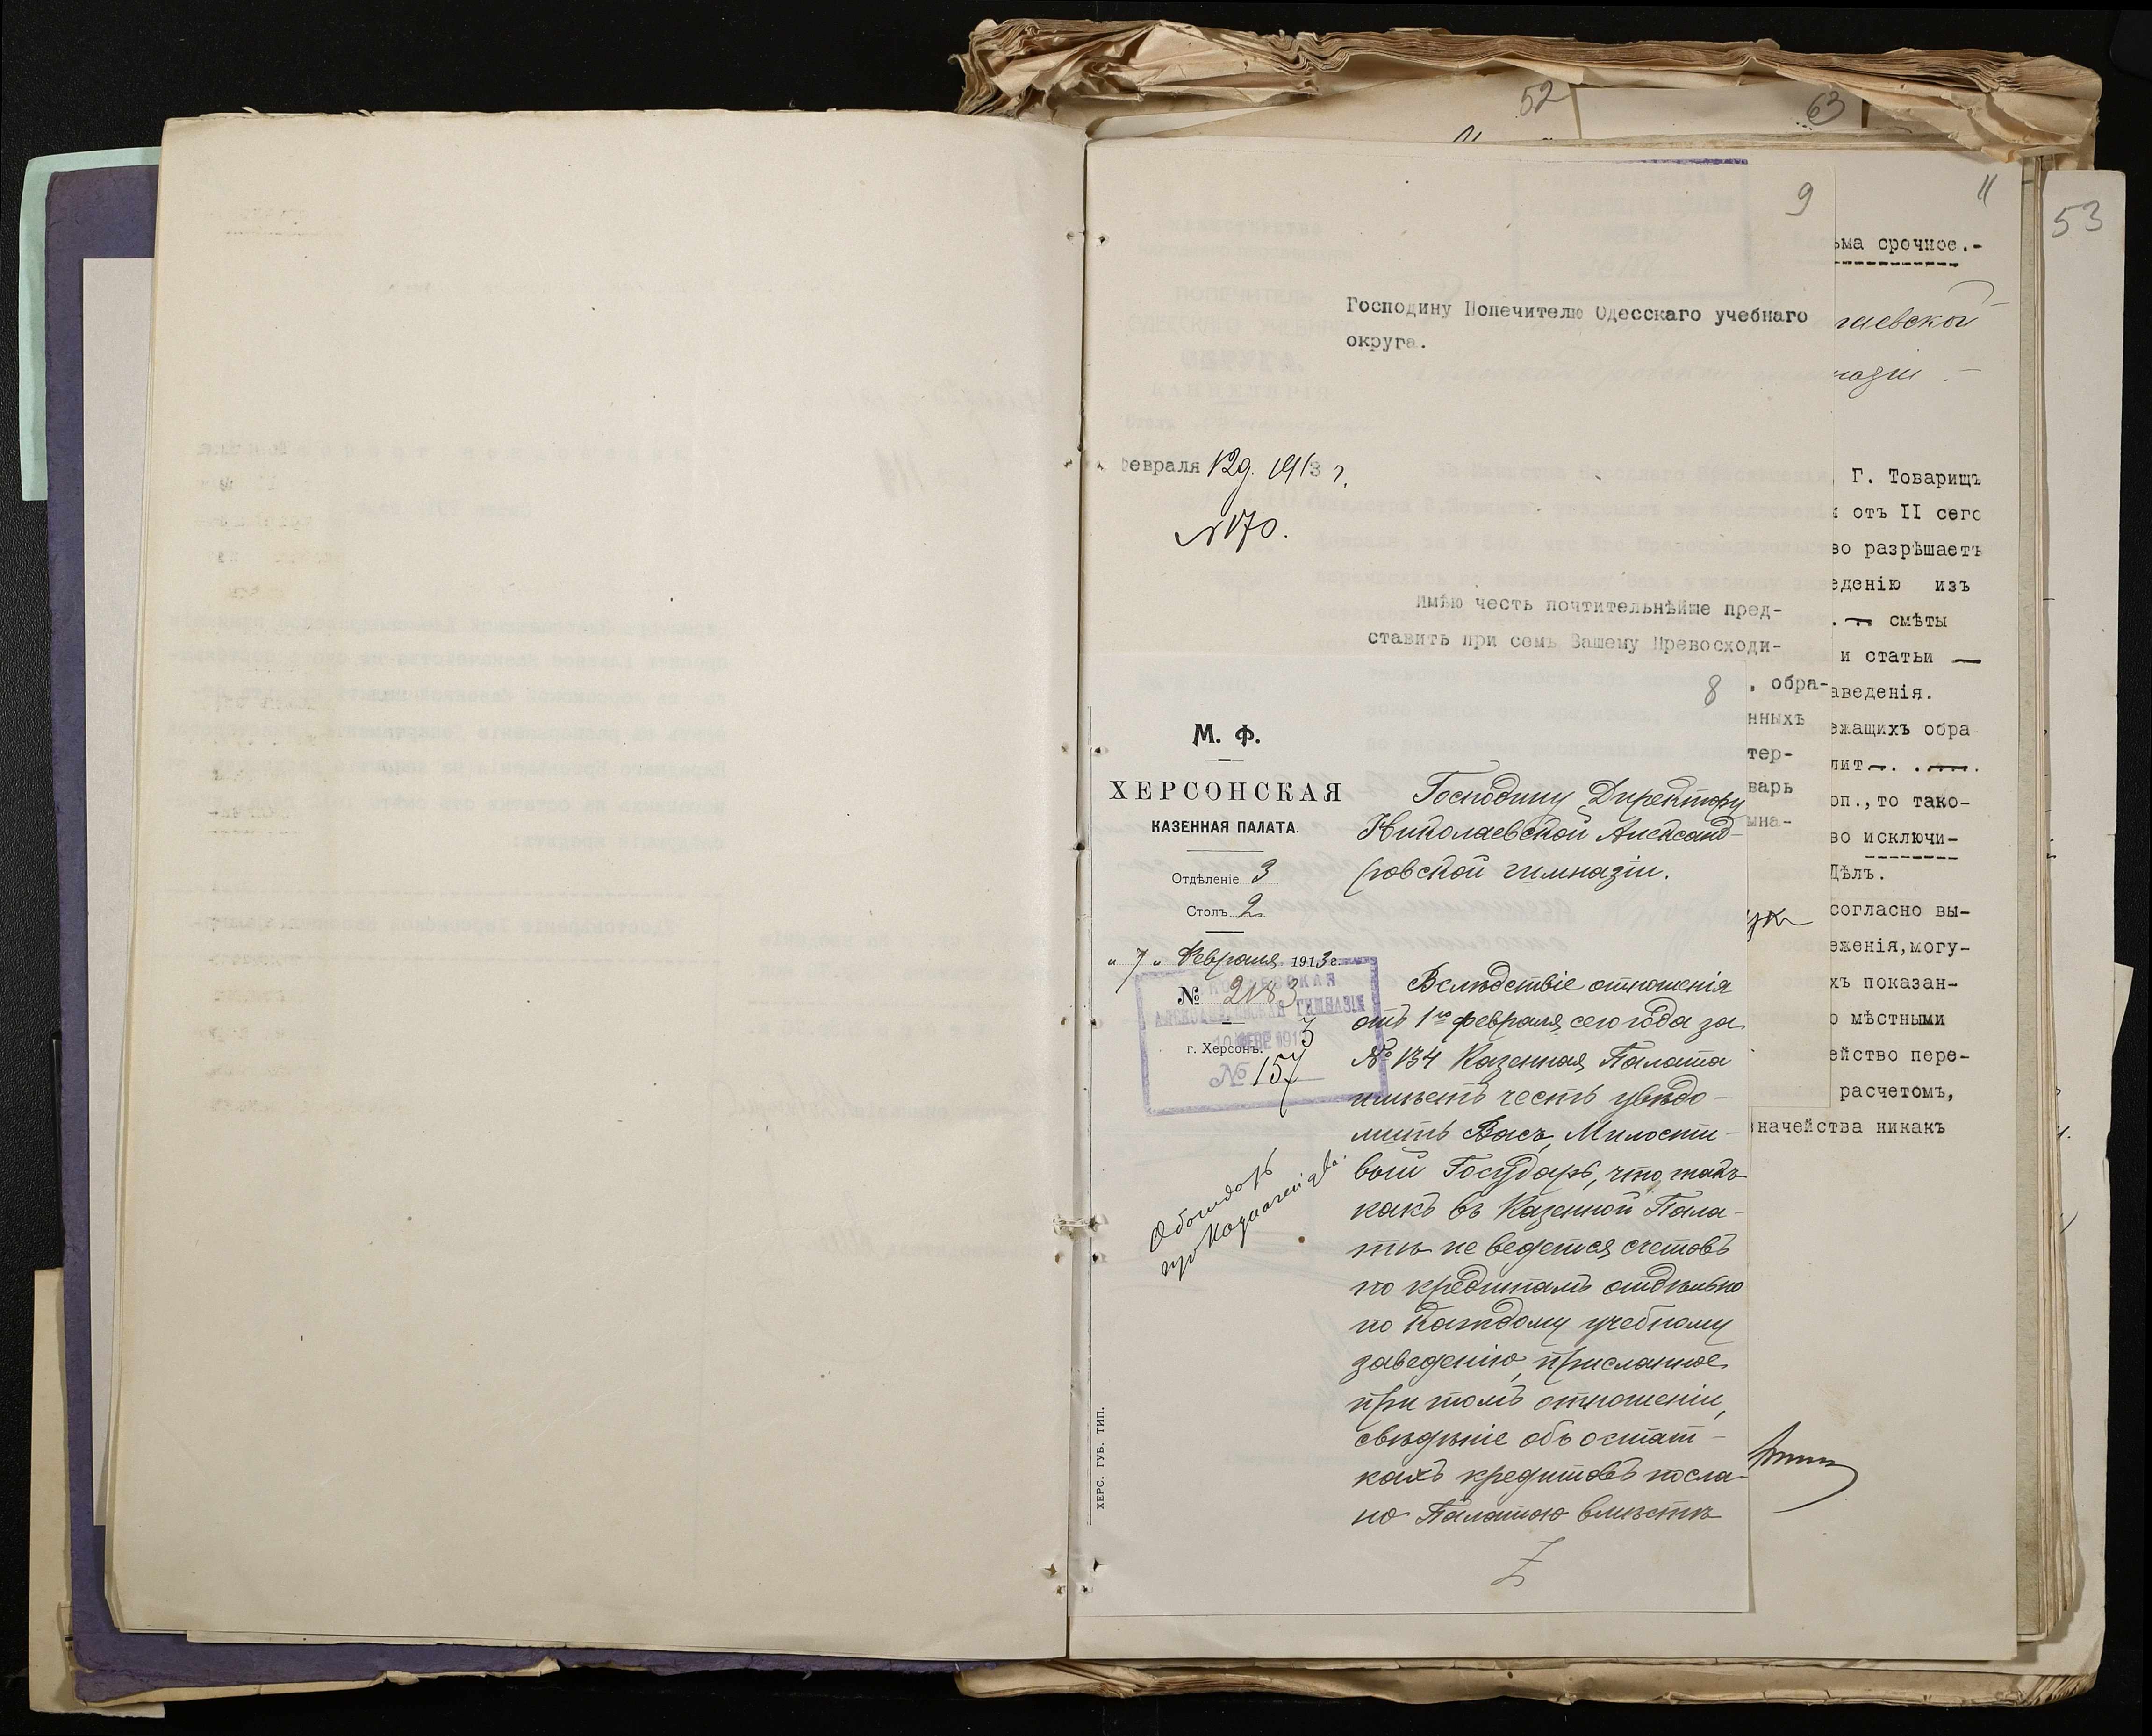 52
63
53
11
ьма срочное.-
гаевской
назіи -
Г. Товарищъ
отъ II сего
во разрѣшаетъ
еденію изъ
смѣты
и статьи —
аведенія.
ежащихъ обра
оп.,то тако-
во исключи-
Дѣлъ.
согласно вы-
еженія,могу-
хъ показан-
о мѣстными
ейство пере-
расчетомъ,
начейства никакъ
9
Господину Попечителю Одесскаго учебнаго
округа.
Февраля 12 д. 1913 г.
№ 170.
Имѣю честь почтительнѣйше пред-
ставить при семъ Вашему Превосходи-
. обра-
нныхъ
тер-
варь
мна-
8
М. Ф.
ХЕРСОНСКАЯ
КАЗЕННАЯ ПАЛАТА.
Отдѣленіе 3
Столъ 2
„ 7 „ Февраля 1913 г.
№ 2183
г. Херсонъ.
АЛЕКСАНДРОВСКАЯ ГИМНАЗІЯ
10 ФЕВР 1913
№ 157
ХЕРС. ГУБ. ТИП.
Господину Директору
Николаевской Александ-
ровской гимназіи.
Вслѣдствіе отношенія
отъ 1го февраля сего года за
№ 134 Казенная Палата
имѣетъ честь увѣдо-
мить Васъ, Милости-
вый Государь, что, такъ
какъ въ Казенной Пала-
тѣ не ведется счетовъ
по кредитамъ отдѣльно
по каждому учебному
заведенію, присланное
при томъ отношеніи,
свѣдѣніе объ остат-
кахъ кредитовъ посла-
но Палатою вмѣстѣ